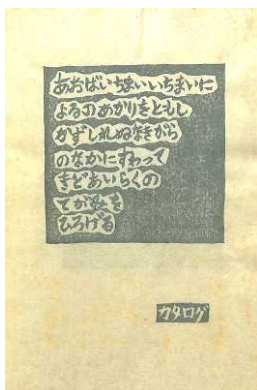 あおばいちまいいちまいに
よるのあかりをともし
かずしれぬなきがら
のなかにすわって
きどあいらくの
てがみを
ひろげる
カタログ